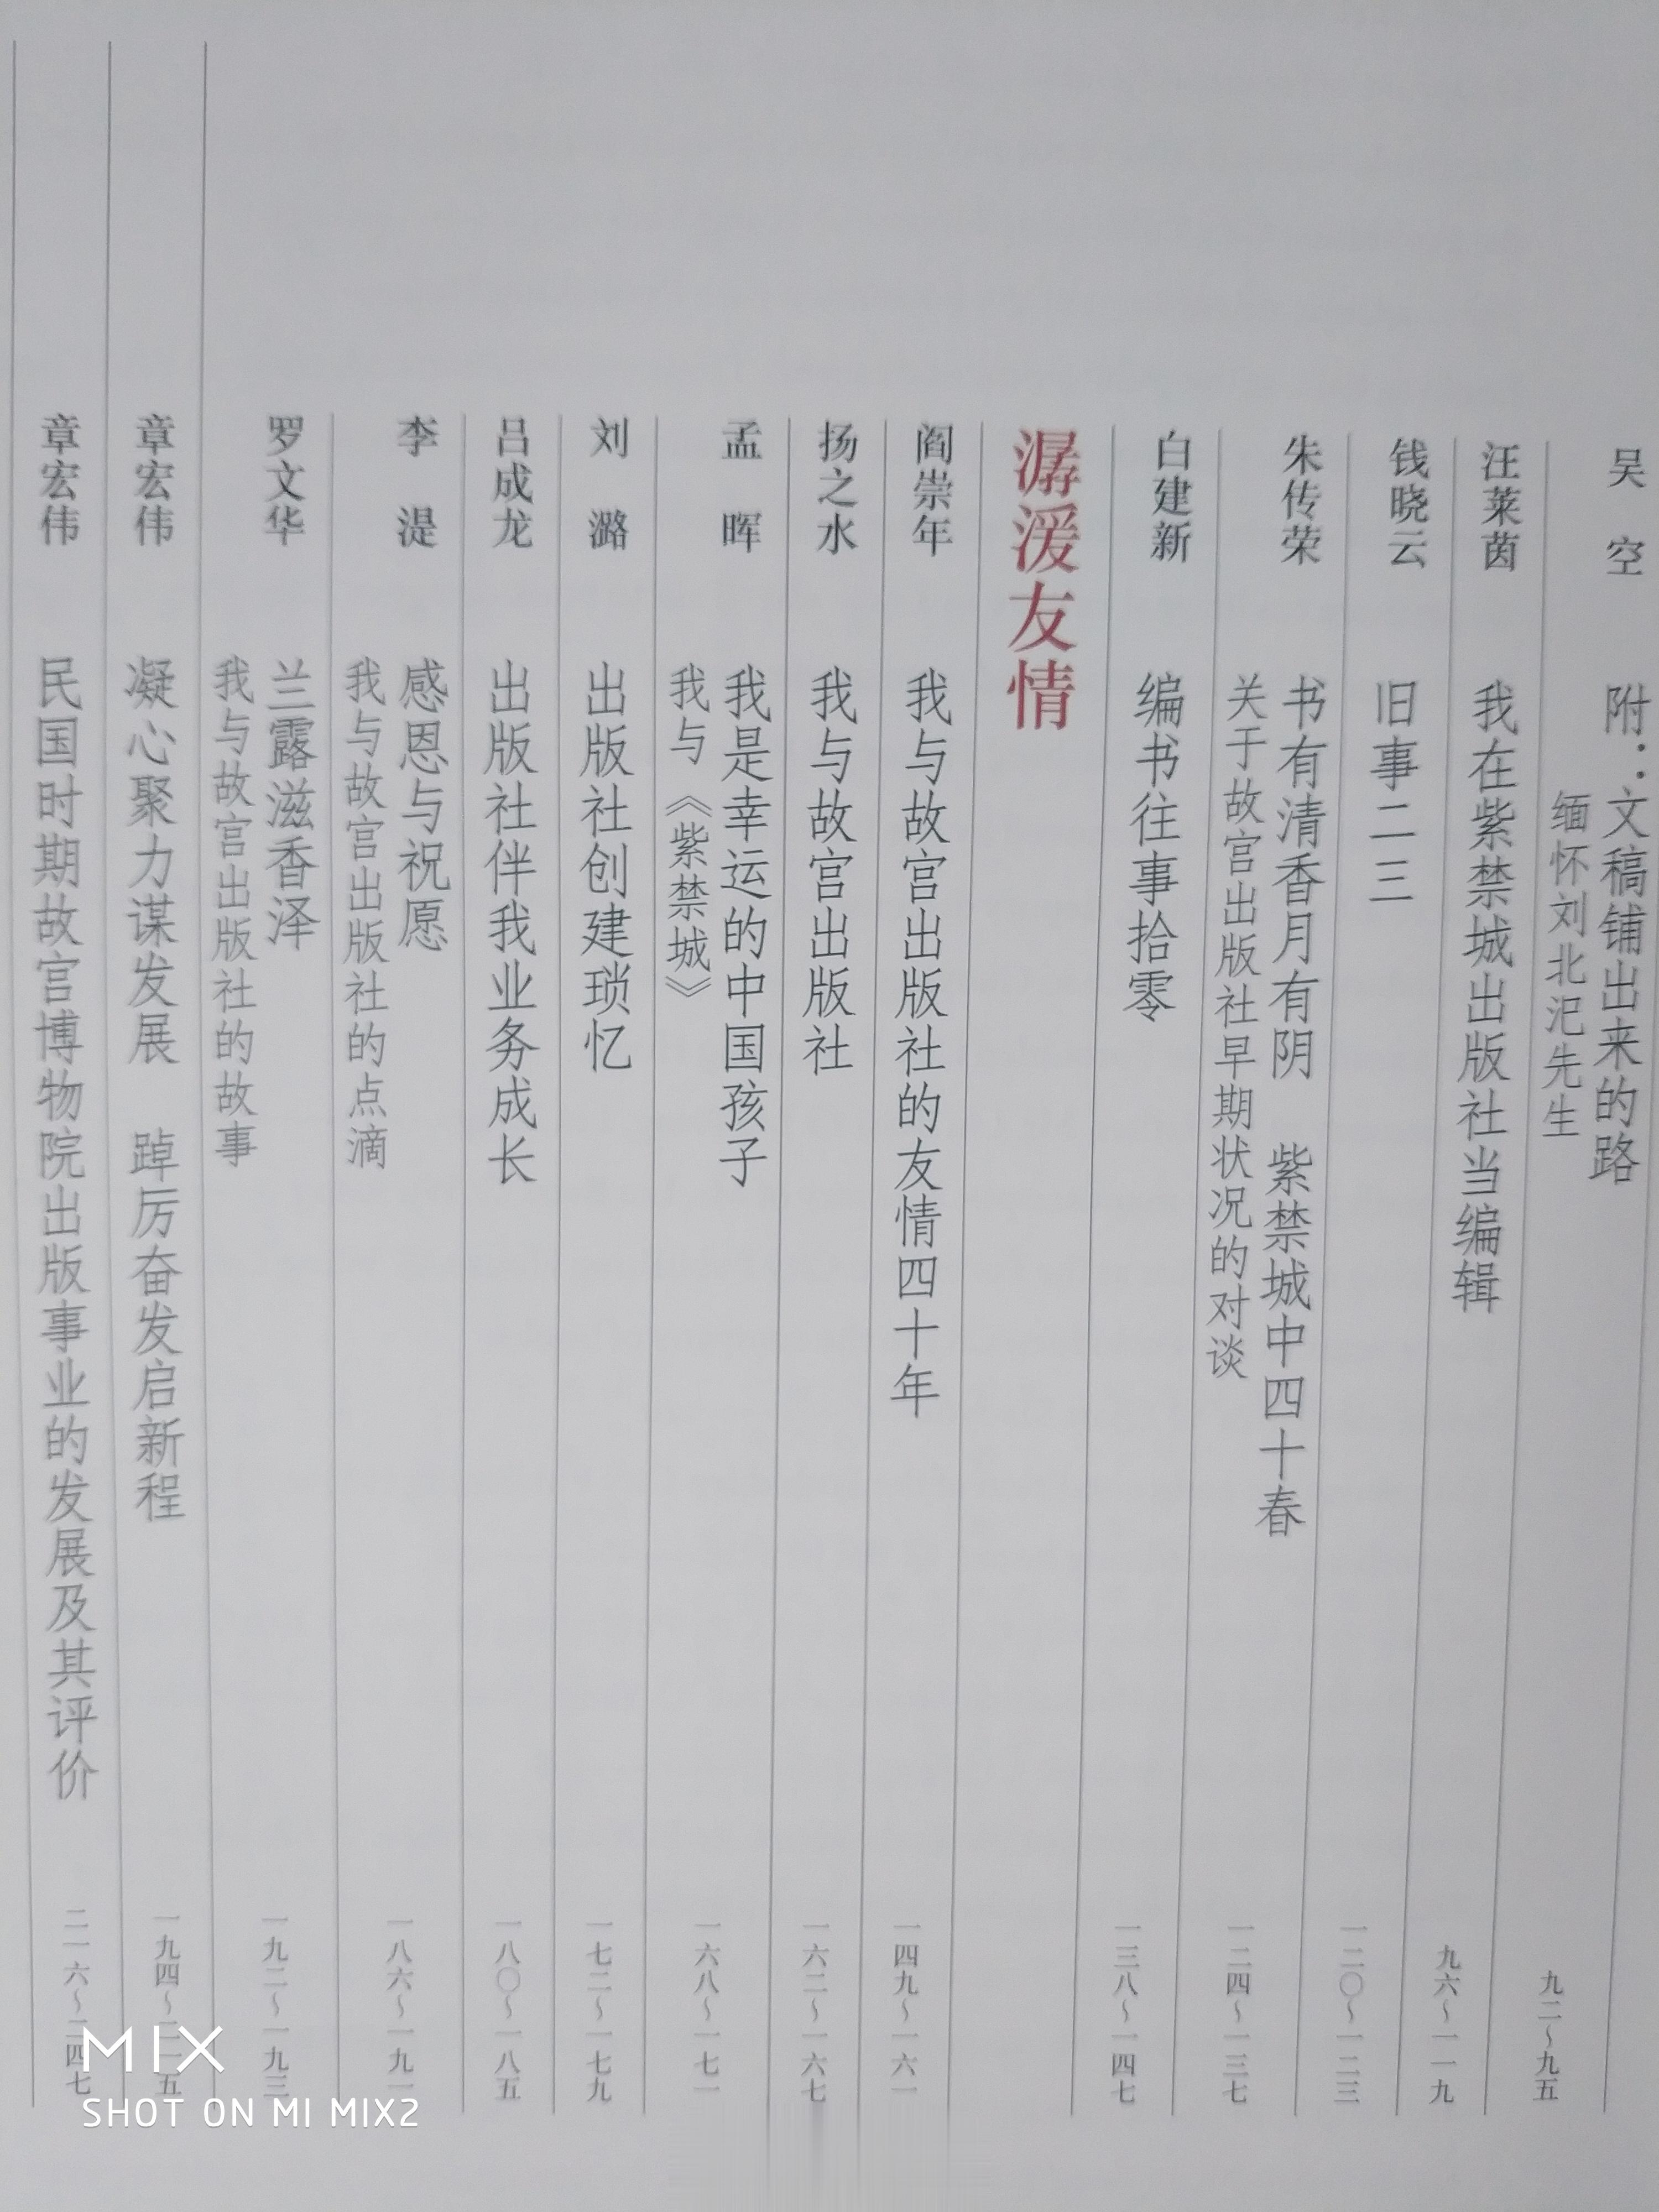 吴 空
附：文稿铺出来的路
缅怀刘北汜先生
九二～九五
汪莱茵
我在紫禁城出版社当编辑
九六～一一九
钱晓云
旧事二三
一二〇～一二三
朱传荣
书有清香月有阴 紫禁城中四十春
关于故宫出版社早期状况的对谈
一二四～一三七
白建新
编书往事拾零
一三八～一四七
潺湲友情
阎崇年
我与故宫出版社的友情四十年
一四九～一六一
扬之水
我与故宫出版社
一六二～一六七
孟 晖
我是幸运的中国孩子
我与《紫禁城》
一六八～一七一
刘 潞
出版社创建琐忆
一七二～一七九
吕成龙
出版社伴我业务成长
一八〇～一八五
李 湜
感恩与祝愿
我与故宫出版社的点滴
一八六～一九一
罗文华
兰露滋香泽
我与故宫出版社的故事
一九二～一九三
章宏伟
凝心聚力谋发展 踔厉奋发启新程
一九四～二一五
章宏伟
民国时期故宫博物院出版事业的发展及其评价
二一六～二四七
MIX
SHOT ON MI MIX2